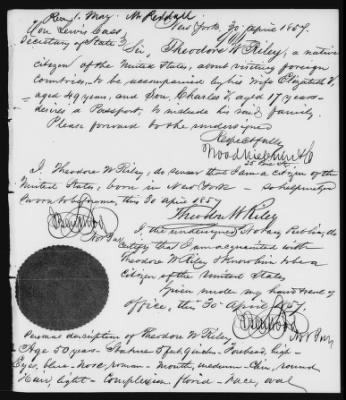 Rec'd 1. May. Mr Reddall
New York, 30 April 1857.
Hon Lewis Cass,
Secretary of State
Sir,
Theodore W Riley, a native
citizen of the United States, about visiting foreign
countries, to be accompanied by his wife Elizabeth V,
aged 49 years, and Son, Charles V, aged 17 years
desires a Passport, to include his said family.
Please forward to the undersigned
Respectfully
I, Theodore W Riley, do swear that I am a citizen of the
United States, born in New York – so help me God
Sworn to before me, this 30 April 1857
Theodore W Riley
Not Pub
I, the undersigned Notary Public, do
certify that I am acquainted with
Theodore W Riley & know him to be a
citizen of the United States
Given under my hand & seal of
office, this 30 April 1857
Not Pub
Personal description of Theodore W Riley
Age 50 years – Stature 5 feet inches – Forehead, high –
Eyes, blue – Nose, roman – Mouth, medium – Chin, round
Hair, light – Complexion florid – Face, oval